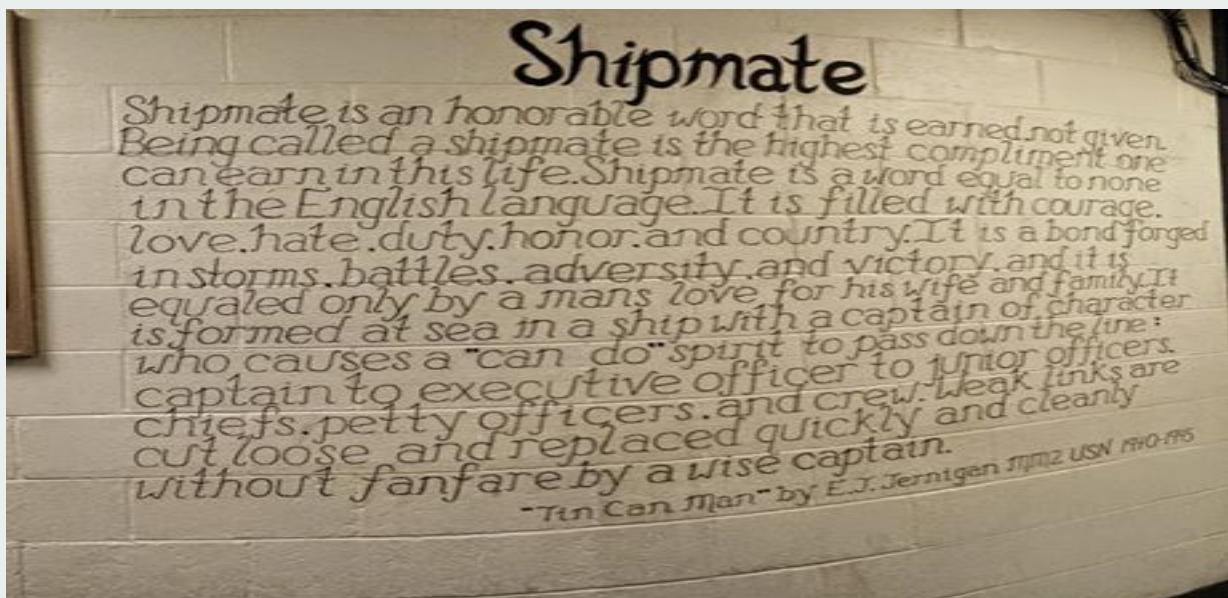 Shipmate
Shipmate is an honorable word that is earned.not given.
Being called a shipmate is the highest compliment one
can earn in this life.Shipmate is a word equal to none
in the English language.It is filled with courage.
love.hate.duty.honor.and country.It is a bond forged
in storms.battles.adversity.and victory.and it is
equaled only by a mans love for his wife and family.It
is formed at sea in a ship with a captain of character
who causes a "can do" spirit to pass down the line:
captain to executive officer to junior officers.
chiefs.petty officers.and crew.Weak links are
cut loose and replaced quickly and cleanly
without fanfare by a wise captain.
-"Tin Can Man" by E.J.Jernigan MM2 USN 1940-1945